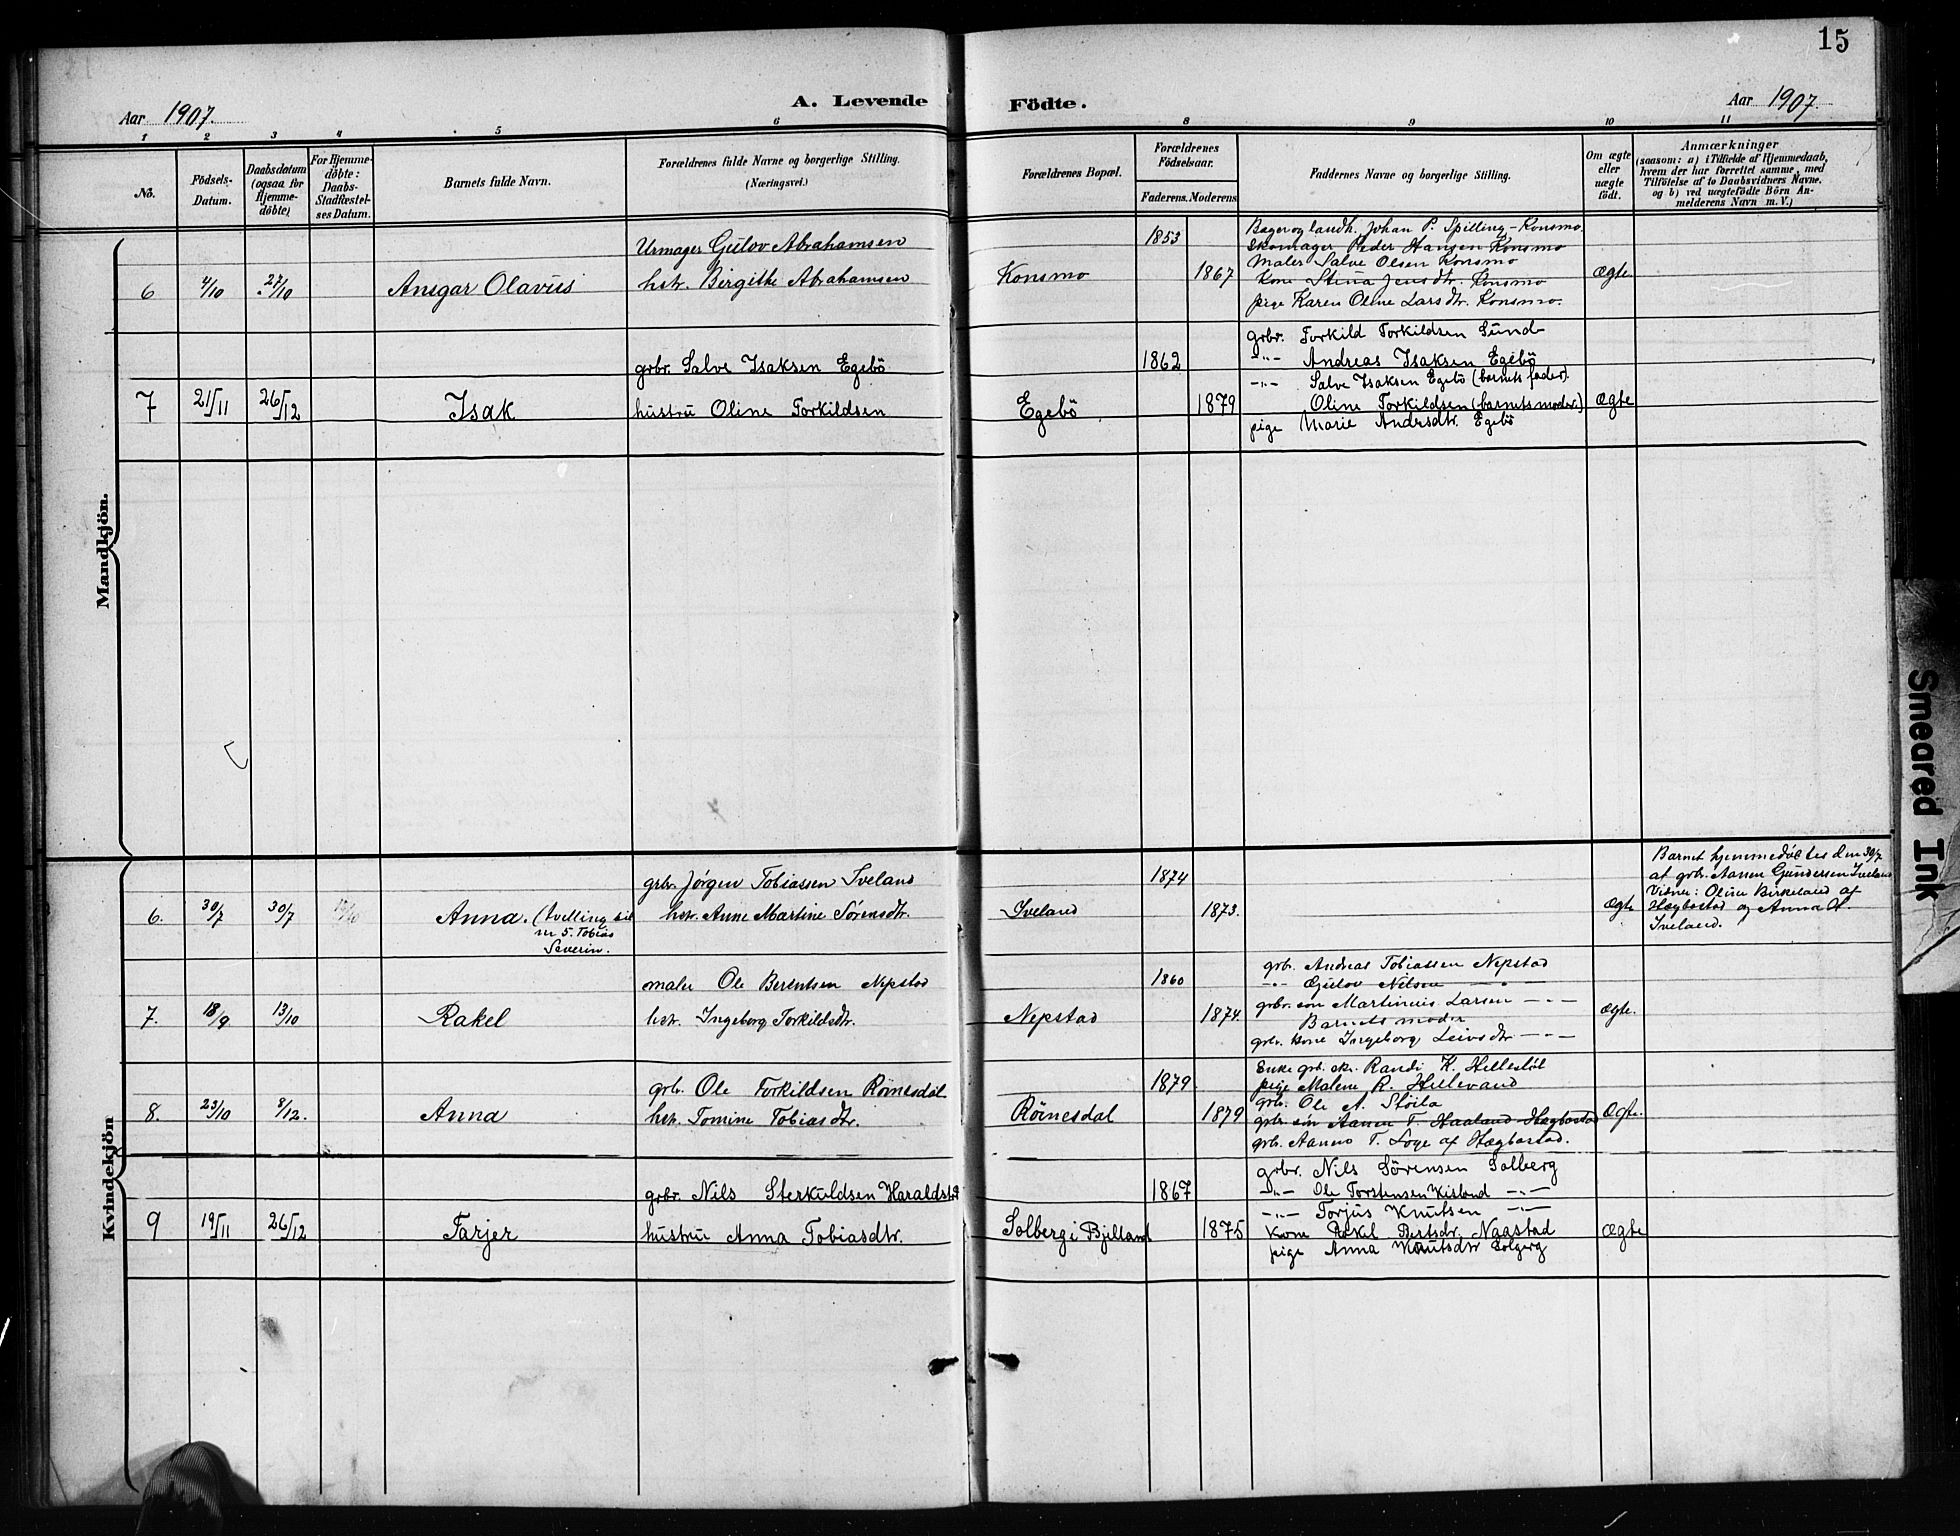 15
Aar 1907.
A. Levende Födte.
Aar 1907.
1 2 3 4 5 6 8 9 10 11
No.
Födsels-Datum.
Daabsdatum (ogsaa for Hjemmedöbte)
For Hjemmedöbte: Daabs-Stadfæstelses Datum.
Barnets fulde Navn.
Forældrenes fulde Navne og borgerlige Stilling. (Næringsvei.)
Forældrenes Bopæl.
Forældrenes Födselsaar.
Faderens. Moderens
Faddernes Navne og borgerlige Stilling.
Om ægte eller uægte födt.
Anmærkninger
(saasom: a) i Tilfælde af Hjemmedaab, hvem der har forrettet samme, med Tilföielse af to Daabsvidners Navne. og b) ved uægtefödte Börn Anmelderens Navn m. V.)
Mandkjön.
6 4/10 27/10 Ansgar Olavus
Urmager Gulov Abrahamsen
hstr. Birgitte Abrahamsen
Konsmo
1853
1867
Bager og landh. Johan P. Spilling - Konsmo
Skomager Peder Hansen Konsmo
Maler Salve Olsen Konsmo
Kone Stina Jensdtr. Konsmo
pige Karen Oline Larsdtr. Konsmo.
Ægte
7 21/11 26/12 Isak
grbr. Salve Isaksen Egebö
hustru Oline Torkildsen
Egebö
1862
1879
grbr. Torkild Torkildsen Sund
-"- Andreas Isaksen Egebö
-"- Salve Isaksen Egebö (barnets fader).
Oline Torkildsen (barnets moder.)
pige Marie Andrsdtr. Egebö
Ægte
Kvindekjön
6. 30/7 30/7 Anna. (Tvilling til
nr 5. Tobias
Severin.
grbr. Jørgen Tobiassen Iveland
hstr. Anne Martine Sørensdtr.
Iveland
1874
1873.
Ægte
Barnet hjemmedøbtes den 30/7
af grb. Aanen Gundersen Iveland
Vidner: Oline Birkeland af
Hægbostad og Anna O.
Iveland.
7. 18/9 13/10 Rakel
maler Ole Berentsen Nepstad
hstr. Ingeborg Torkildsdtr.
Nepstad
1860
1874.
grb. Andreas Tobiassen Nepstad
-"- Gulov Nilsen -"-
grbr. søn Martinius Larsen -"-
Barnets moder
grbr. kone Ingeborg Leivsdtr -"-
Ægte.
8. 23/10 8/12. Anna
grb. Ole Torkildsen Röinesdal
hstr. Tomine Tobiasdtr.
Röinesdal
1879
1879
Enke grb. Randi K. Hillestöl
pige Malene R. Hillevand
grb. Ole A. Stöila
grbr. sön Aanen T. Haaland Hægbostad
grb. Aanen T. Loge af Hægbostad.
Ægte.
9 19/11 26/12 Farjer
grbr. Nils Sterkuldsen Haraldstad
hustru Anna Tobiasdtr.
Solberg i Bjelland
1867
1875
grbr. Nils Sörensen Solberg
-"- Ole Torstensen -"-
-"- Torjus Knutsen -"-
Kone Rakel Bertsdtr. Nagstad
pige Anna Knutsdtr Solgerg
Ægte
Smeared Ink